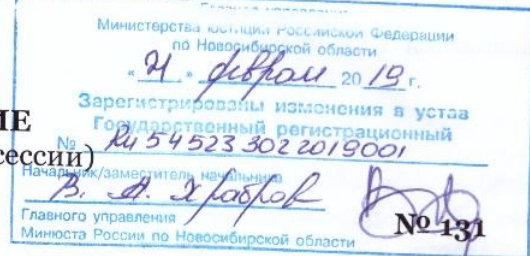 Главное управление
Министерства юстиции Российской Федерации
по Новосибирской области
« 21 » февраля 2019 г.
Зарегистрированы изменения в устав
ИЕ
Государственный регистрационный
№ RU 545233022019001
сессии)
Начальник/заместитель начальника
В. А. Храбров
Главного управления
№ 131
Минюста России по Новосибирской области